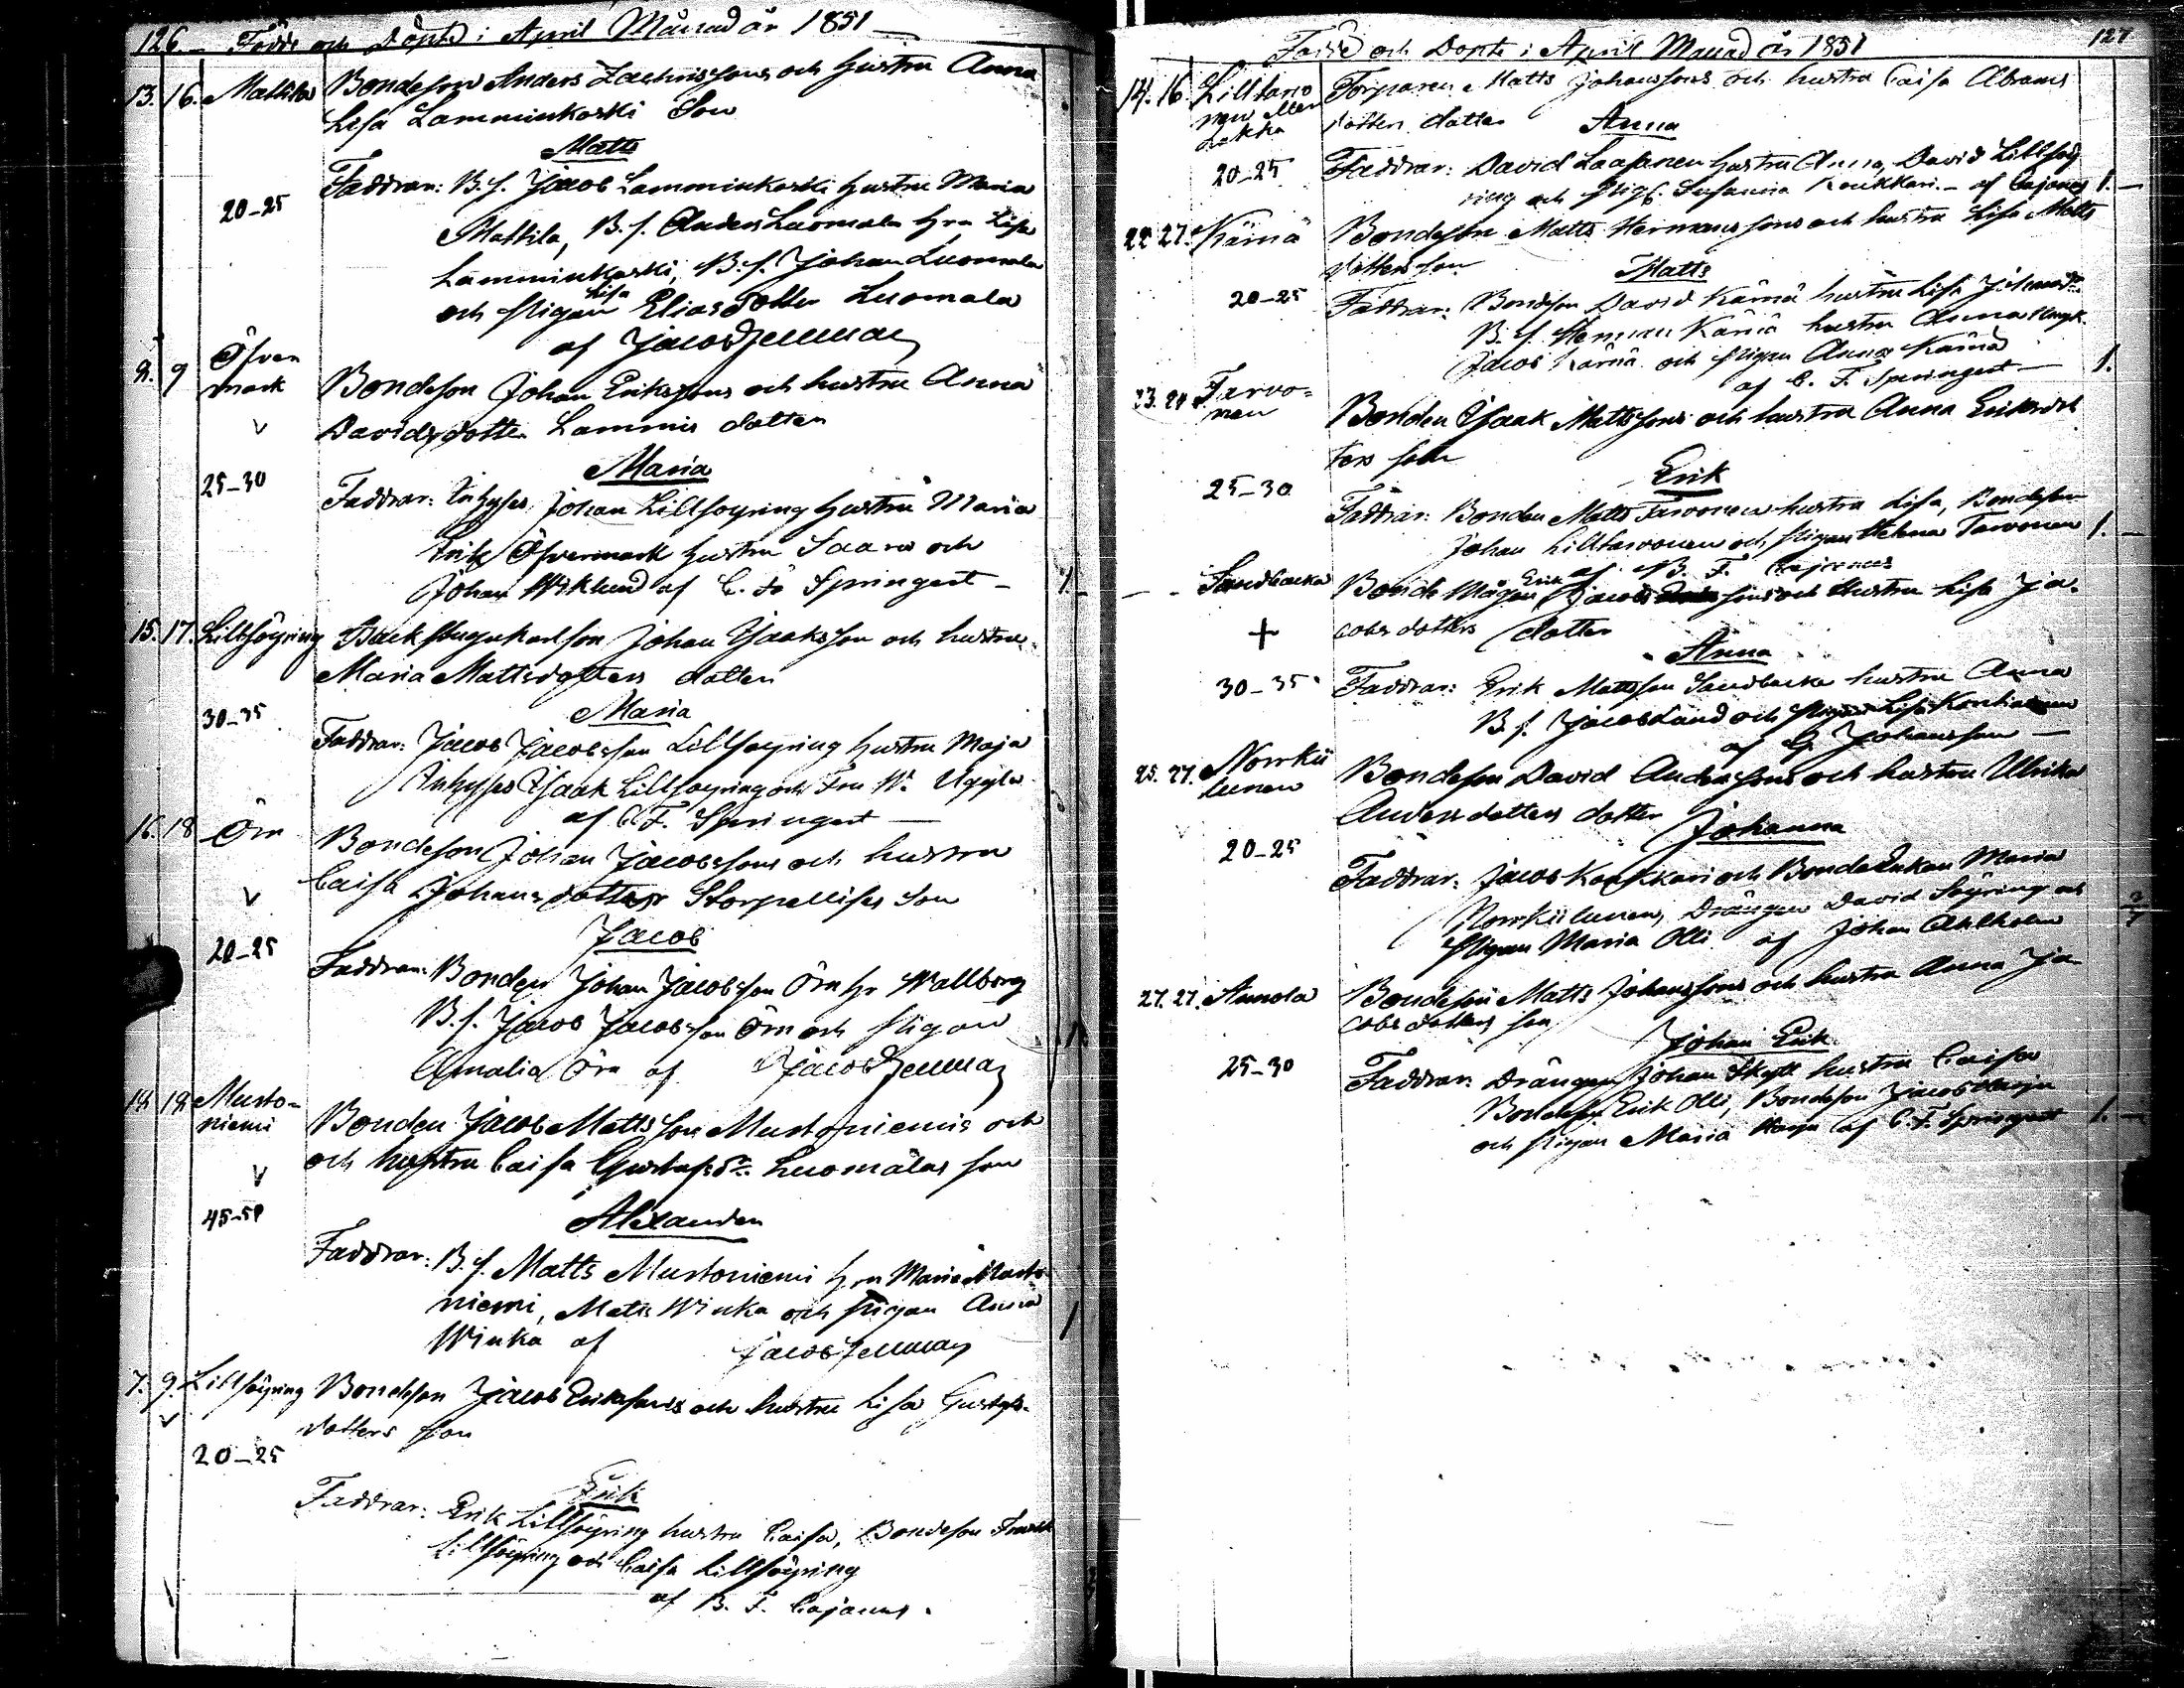 126 Födde och Döpte i April Månad år 1851
13. 16. Mattila Bondeson Anders Zachrissons och hustru Anna
Lisa Lamminkoski Son
Matts
20-25 Faddrar: B.s. Jacob Lamminkoski hustru Maria
Mattila, B.s. Anders Luomala hru Lisa
Lamminkoski, B.s. Johan Luomala
och pigan Lisa Elias dotter Luomala
af Jacob Fellman
9 Öfver
mark Bondeson Johan Erikssons och hustru Anna
Davidsdotter Lammis dotter
Maria
25-30 Faddrar: Inhyses Johan Lillsöyring hustru Maria
Erik Öfvermark hustru Saara och
Johan Wiklund af C. F. Springert 1.
15. 17. Lillsöyring Johan Isaksson och hustru
Maria Mattsdotters dotter
Maria
30-35 Faddrar: Jacob Jacobsson Lillsöyring hustru Maja
Inhyses Isaak Lillsöyring och Fru W. Uggla
af C. F. Springert
16. 18 Örn Bondeson Johan Jacobssons och hustru
Caisa Johansdotter Storpellises Son
Jacob
20-25 Faddrar: Bonden Johan Jacobsson Örn hr Wallborg
B.s. Jacob Jacobsson Örn och pigan
Amalia Örn af Jacob Fellman 1.
18. 18. Musto-
niemi Bonden Jacob Mattsson Mustoniemis och
och hustru Caisa Gustafsdr. Luomalas son
45-50 Alexander
Faddrar: B.s. Matts Mustoniemi hru Maria Musto
niemi, Matts Winka och pigan Anna
Winka af Jacob Fellman 1
7. 9. Lillsöyring Bondeson Jacob Erikssons och hustru Lisa Gustafs-
dotters son
20-25
Erik
Faddrar: Erik Lillsöyring hustru Caisa, Bondeson
Lillsöyring och Caisa Lillsöyring
af B. F. Cajanus.
Födde och Döpte i April Månad år 1851 127
14. 16. Lilltarvo
nen
Torparen Matts Johanssons och hustru Caisa Abrams
dotters dotter Anna
20-25 Faddrar: David Laasanen hustru Anna, David Lillsöy
ring och pig. Susanna Koukkari. af Cajanus 1.
22. 27. Kärnä Bondeson Matts Hermanssons och hustru Lisa Matts
dotters son Matts
20-25 Faddrar: Bondeson David Kärnä hustru Lisa
B.s. Herman Kärnä hustru Anna
Jacob Kärnä och pigan Anna Kärnä
af C. F. Springert 1.
23. 24. Tarvo-
nen Bonden Isaak Mattssons och hustru Anna Eriksdot
ters son
Erik
25-30 Faddrar: Bonden Matts Tarvonen hustru Lisa, Bondeson
Johan Lilltarvonen och pigan Helena Tarvonen 1.
af B. F. Cajanus
Sandbacka Bonde Mågen Erik Jacobssons och Hustru Lisa Ja-
+ cobs dotters dotter
Anna
30-35 Faddrar: Erik Mattsson Sandbacka hustru Anna
B.s. Jacob Sand och pigan Lisa
af G. Johansson
25. 27. Norrkii
lunen Bondeson David Anderssons och hustru Ulrika
Anders dotters dotter Johanna
20-25 Faddrar: Jacob Koukkari och Bonde Enkan Maria
Norrkiilunen, Drängen David Söyring och
Pigan Maria Olli af Johan Ahlholm
27. 27. Annola Bondeson Matts Johanssons och hustru Anna Ja-
cobs dotters son
Johan Erik
25-30 Faddrar: Drängen Johan hustru Caisa
Bondeson Erik Olli, Bondeson Jacob Harju
och pigan Maria Harju af C. F. Springert 1.